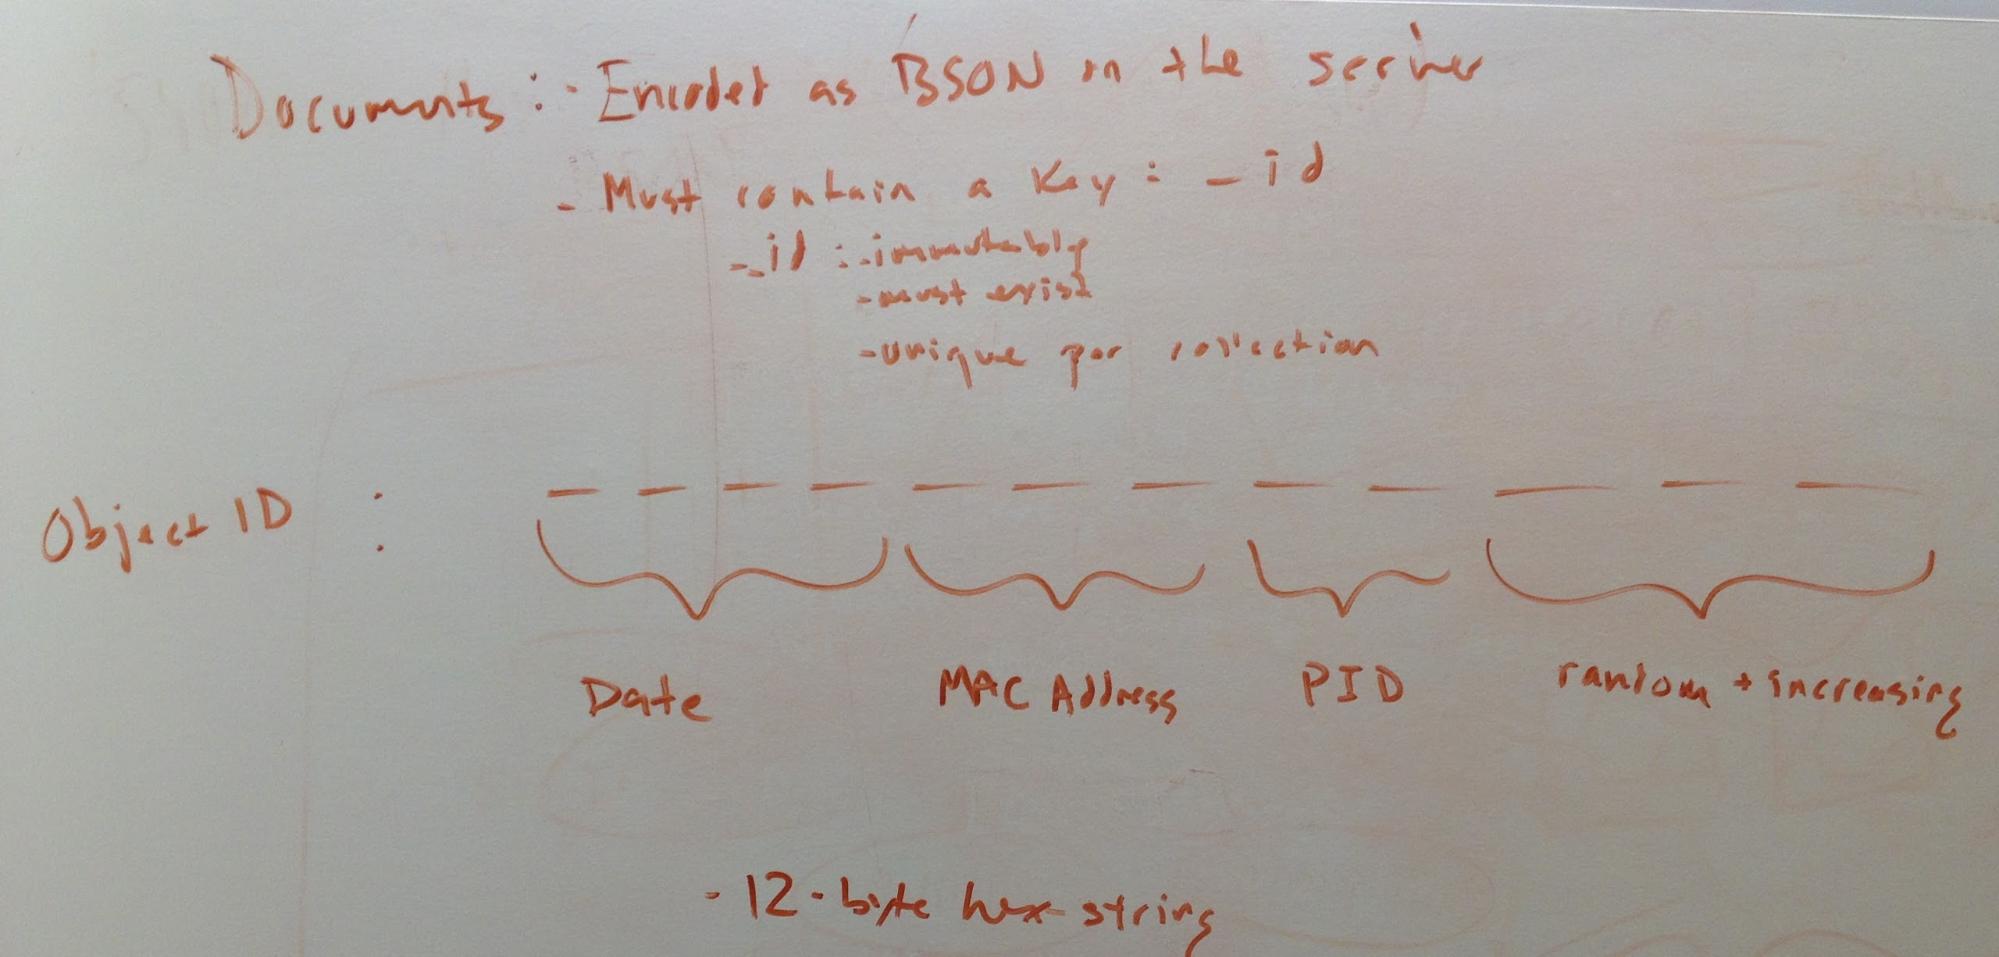 Documents : - Encoded as BSON on the server
- Must contain a key : _id
- _id : - immutable
- must exist
- unique per collection
Object ID : _ _ _ _ _ _ _ _ _ _ _ _
Date MAC Address PID random + increasing
- 12-byte hex string